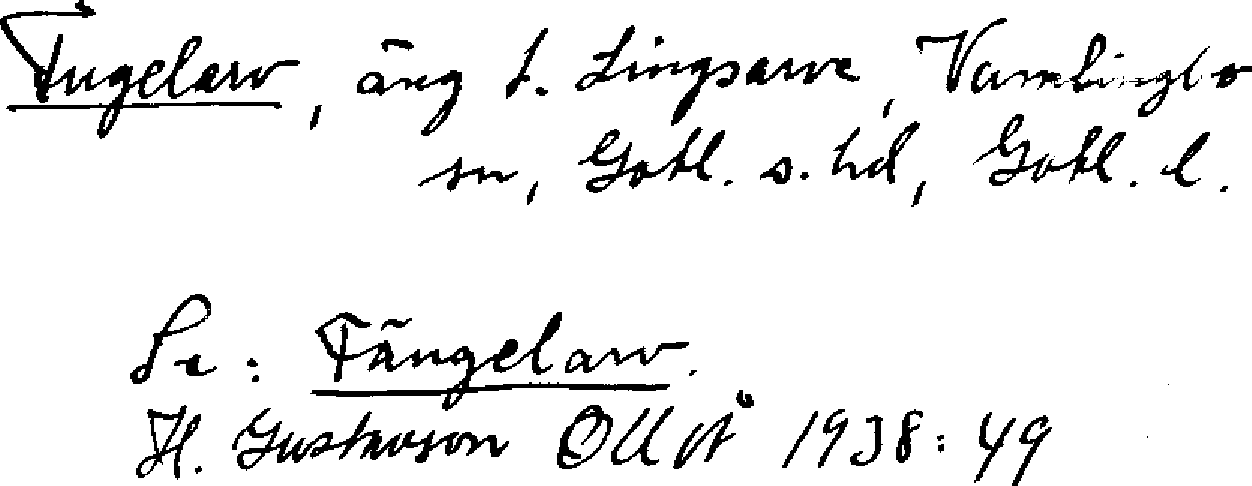 Fugelarv, äng t. Lingsarve, Vamlingbo
sn, Gotl. s. hd, Gotl. l.
Se: Fängelarv.
H. Gustavson OUÅ 1938: 49